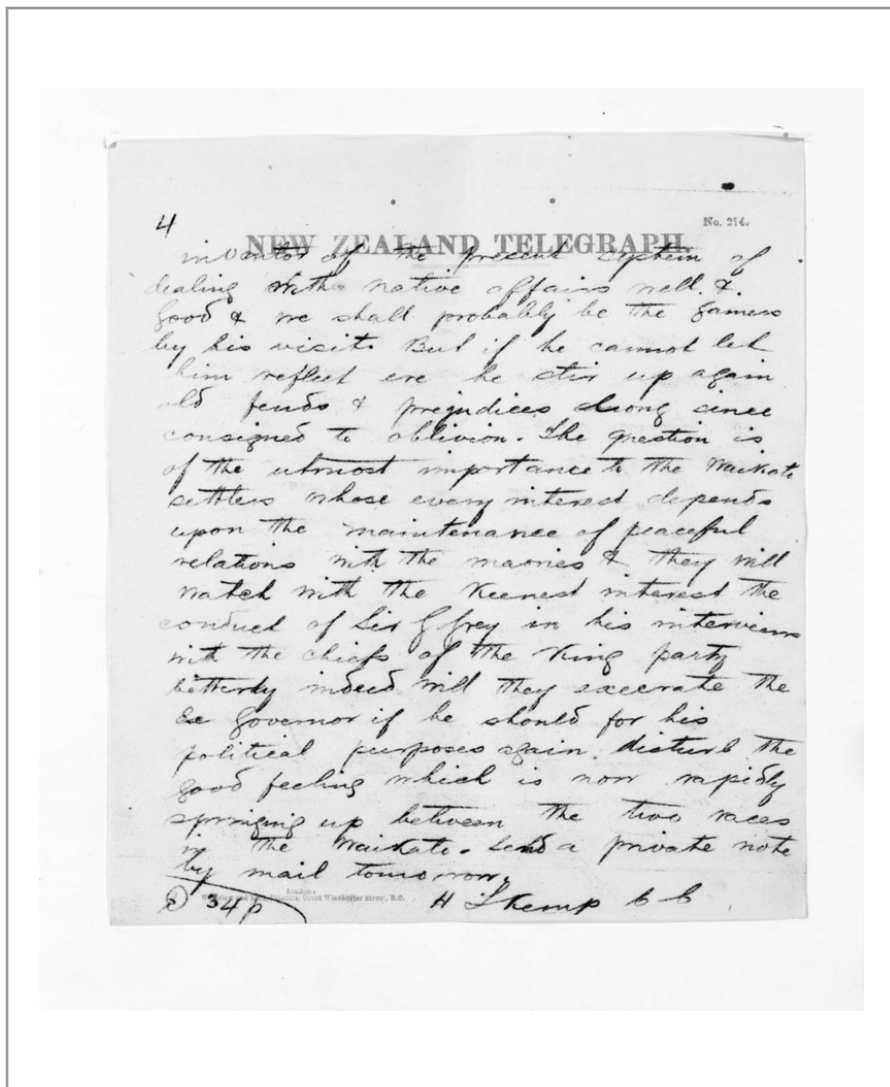 4
No. 214.
NEW ZEALAND TELEGRAPH.
inventor of the present system of
dealing with native affairs well. &
good & we shall probably be the gainers
by his visit. But if he cannot let
him reflect ere he stir up again
old feuds & prejudices long since
consigned to oblivion. The question is
of the utmost importance to the Waikato
settlers whose every interest depends
upon the maintenance of peaceful
relations with the maories & they will
watch with the keenest interest the
conduct of Sir G Grey in his interviews
with the chiefs of the King party
bitterly indeed will they execrate the
Ex governor if he should for his
political purposes again disturb the
good feeling which is now rapidly
springing up between the two races
in the Waikato. Send a private note
by mail tomorrow.
London:
Great Winchester street, E.C.
34p H T Kemp C C